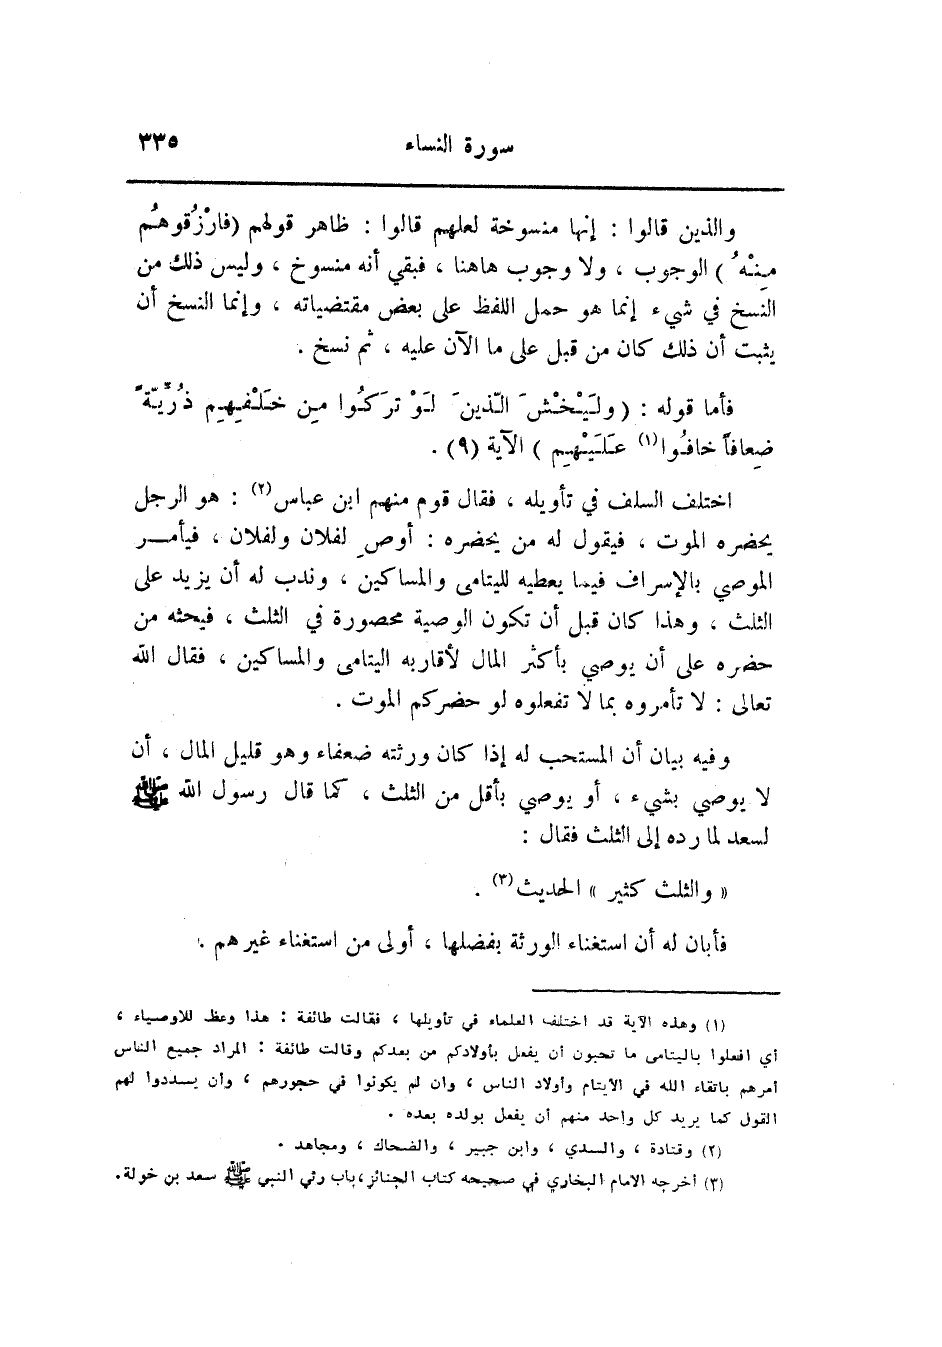 سورة النساء ٣٣٥
والذين قالوا : إنها منسوخة لعلهم قالوا : ظاهر قولهم (فارْزُقوهُم
مِنْهُ ) الوجوب ، ولا وجوب هاهنا ، فبقي أنه منسوخ ، وليس ذلك من
النسخ في شيء إنما هو حمل اللفظ على بعض مقتضياته ، وإنما النسخ أن
يثبت أن ذلك كان من قبل على ما الآن عليه ، ثم نسخ .
فأما قوله : ( ولْيَخْشَ الّذينَ لَوْ ترَكُوا مِن خَلْفِهِم ذُرِّيّةً
ضِعافاً خافُوا(١) عَلَيْهِم ) الآية (٩) .
اختلف السلف في تأويله ، فقال قوم منهم ابن عباس(٢) : هو الرجل
يحضره الموت ، فيقول له من يحضره : أوصِ لفلان ولفلان ، فيأمـر
الموصي بالإسراف فيما يعطيه لليتامى والمساكين ، وندب له أن يزيد على
الثلث ، وهذا كان قبل أن تكون الوصية محصورة في الثلث ، فيحثه من
حضره على أن يوصي بأكثر المال لأقاربه اليتامى والمساكين ، فقال الله
تعالى : لا تأمروه بما لا تفعلوه لو حضركم الموت .
وفيه بيان أن المستحب له إذا كان ورثته ضعفاء وهو قليل المال ، أن
لا يوصي بشيء ، أو يوصي بأقل من الثلث ، كما قال رسول الله ﷺ
لسعد لما رده إلى الثلث فقال :
« والثلث كثير » الحديث(٣) .
فأبان له أن استغناء الورثة بفضلها ، أولى من استغناء غيرهم .
(١) وهذه الآية قد اختلف العلماء في تأويلها ، فقالت طائفة : هذا وعظ للاوصياء ،
أي افعلوا باليتامى ما تحبون أن يفعل بأولادكم من بعدكم وقالت طائفة : المراد جميع الناس
أمرهم باتقاء الله في الأيتام وأولاد الناس ، وان لم يكونوا في حجورهم ، وأن يسددوا لهم
القول كما يريد كل واحد منهم أن يفعل بولده بعده .
(٢) وقتادة ، والسدي ، وابن جبير ، والضحاك ، ومجاهد .
(٣) أخرجه الامام البخاري في صحيحه كتاب الجنائز،باب رثي النبي ﷺ سعد بن خولة.